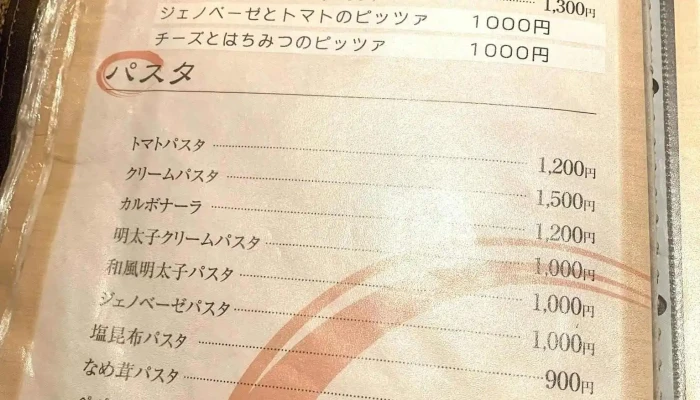 1,300円
ジェノベーゼとトマトのピッツァ 1000円
チーズとはちみつのピッツァ 1000円
パスタ
トマトパスタ 1,200円
クリームパスタ 1,500円
カルボナーラ 1,200円
明太子クリームパスタ 1,000円
和風明太子パスタ 1,000円
ジェノベーゼパスタ 1,000円
塩昆布パスタ 900円
なめ茸パスタ